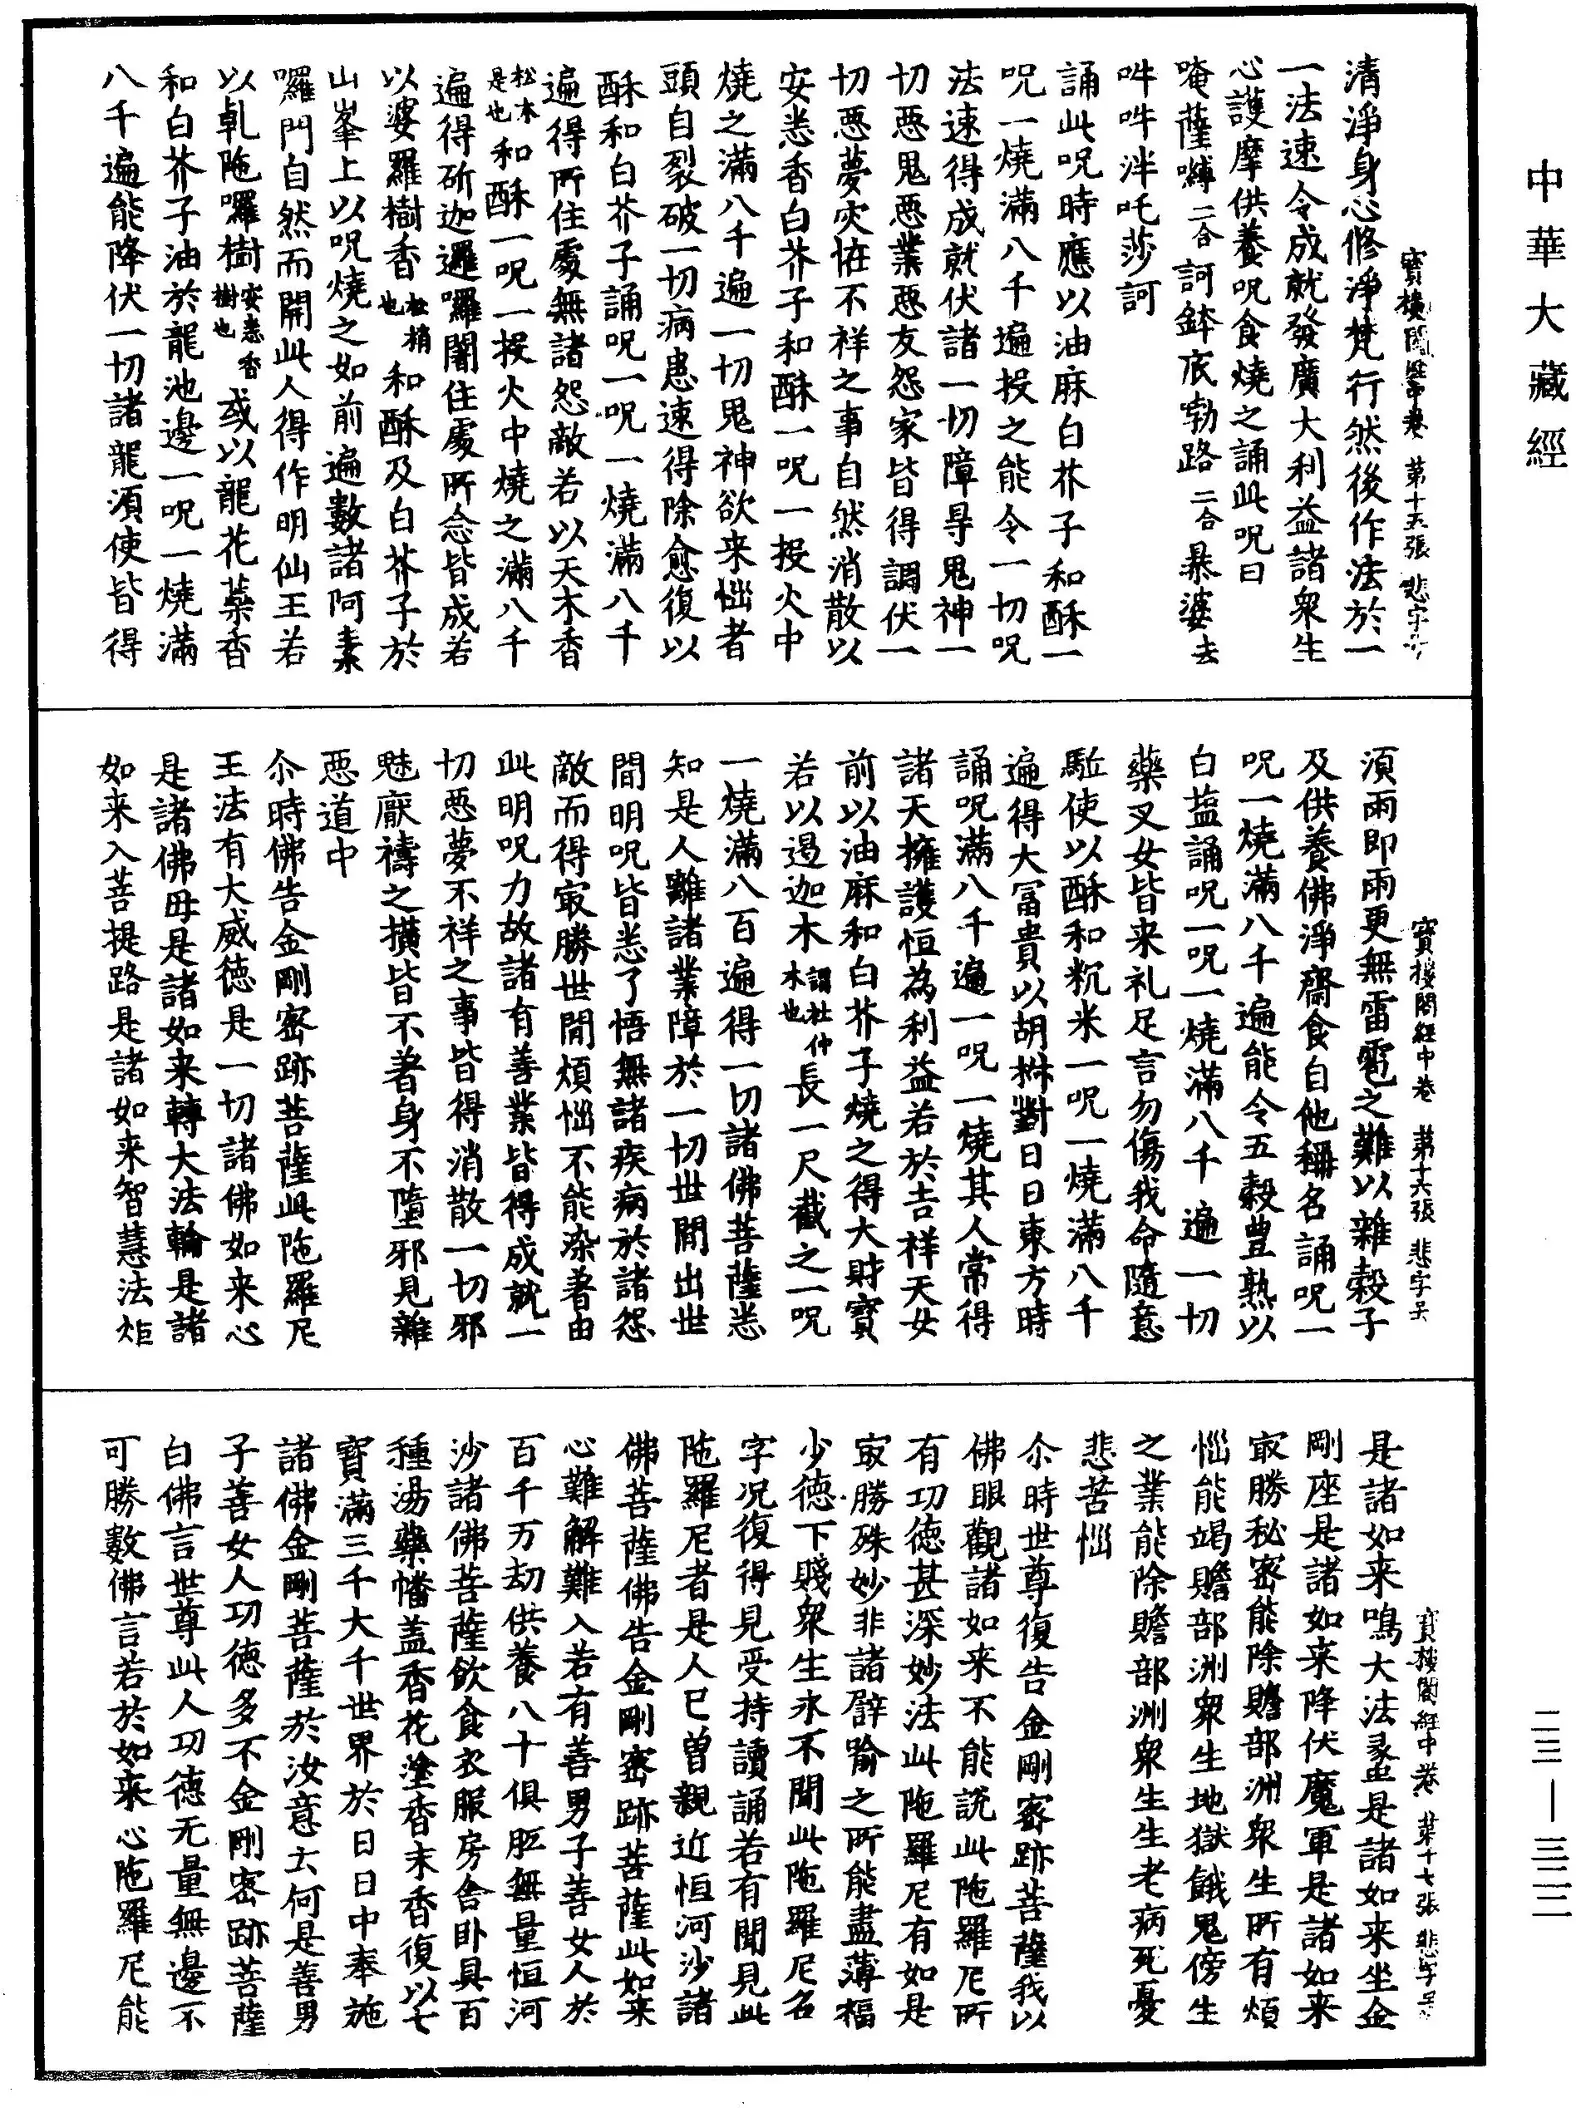 中華大藏經
寶樓閣經中卷 第十五張 悲字号
清淨身心修淨梵行然後作法於一
一法速令成就發廣大利益諸衆生
心護摩供養呪食燒之誦此呪曰
唵薩嚩二合訶鉢底勃路二合暴婆去
吽吽泮吒莎訶
誦此呪時應以油麻白芥子和酥一
呪一燒滿八千遍投之能令一切呪
法速得成就伏諸一切障㝵鬼神一
切惡鬼惡業惡友怨家皆得調伏一
切惡夢灾恠不祥之事自然消散以
安悉香白芥子和酥一呪一投火中
燒之滿八千遍一切鬼神欲来惱者
頭自裂破一切病患速得除愈復以
酥和白芥子誦呪一呪一燒滿八千
遍得所住處無諸怨敵若以天木香
松木是也和酥一呪一投火中燒之滿八千
遍得斫迦邏囉闍住處所念皆成若
以婆羅樹香松梢也和酥及白芥子於
山峯上以呪燒之如前遍數諸阿素
囉門自然而開此人得作明仙王若
以乹陁囉樹安悉香樹也或以龍花蘂香
和白芥子油於龍池邊一呪一燒滿
八千遍能降伏一切諸龍須使皆得
寶樓閣經中卷 第十六張 悲字号
須雨即雨更無雷雹之難以雜穀子
及供養佛淨齋食自他稱名誦呪一
呪一燒滿八千遍能令五穀豊熟以
白䀋誦呪一呪一燒滿八千遍一切
藥叉女皆来礼足言勿傷我命隨意
駈使以酥和粇米一呪一燒滿八千
遍得大冨貴以胡椒對日日東方時
誦呪滿八千遍一呪一燒其人常得
諸天擁護恒為利益若於吉祥天女
前以油麻和白芥子燒之得大財寳
若以遏迦木謂杜仲木也長一尺截之一呪
一燒滿八百遍得一切諸佛菩薩悉
知是人離諸業障於一切世間出世
間明呪皆悉了悟無諸疾病於諸怨
敵而得㝡勝世間煩惱不能染著由
此明呪力故諸有善業皆得成就一
切惡夢不祥之事皆得消散一切邪
魅厭禱之擴皆不著身不墮邪見雜
惡道中
尒時佛告金剛密跡菩薩此陁羅尼
王法有大威德是一切諸佛如来心
是諸佛母是諸如来轉大法輪是諸
如来入菩提路是諸如来智慧法炬
寶樓閣經中卷 第十七張 悲字号
是諸如来鳴大法螺是諸如来坐金
剛座是諸如来降伏魔軍是諸如来
㝡勝秘密能除贍部洲衆生所有煩
惱能竭贍部洲衆生地獄餓鬼傍生
之業能除贍部洲衆生生老病死憂
悲苦惱
尒時世尊復告金剛密跡菩薩我以
佛眼觀諸如来不能説此陁羅尼所
有功德甚深妙法此陁羅尼有如是
㝡勝殊妙非諸辟喻之所能盡薄福
少德下賤衆生永不聞此陁羅尼名
字况復得見受持讀誦若有聞見此
陁羅尼者是人已曾親近恒河沙諸
佛菩薩佛告金剛密跡菩薩此如来
心難解難入若有善男子善女人於
百千万劫供養八十俱胝無量恒河
沙諸佛菩薩飲食衣服房舍卧具百
種湯藥幡蓋香花塗香末香復以七
寳滿三千大千世界於日日中奉施
諸佛金剛菩薩於汝意云何是善男
子善女人功德多不金剛密跡菩薩
白佛言世尊此人功德无量無邊不
可勝數佛言若於如来心陁羅尼能
二三—三二二